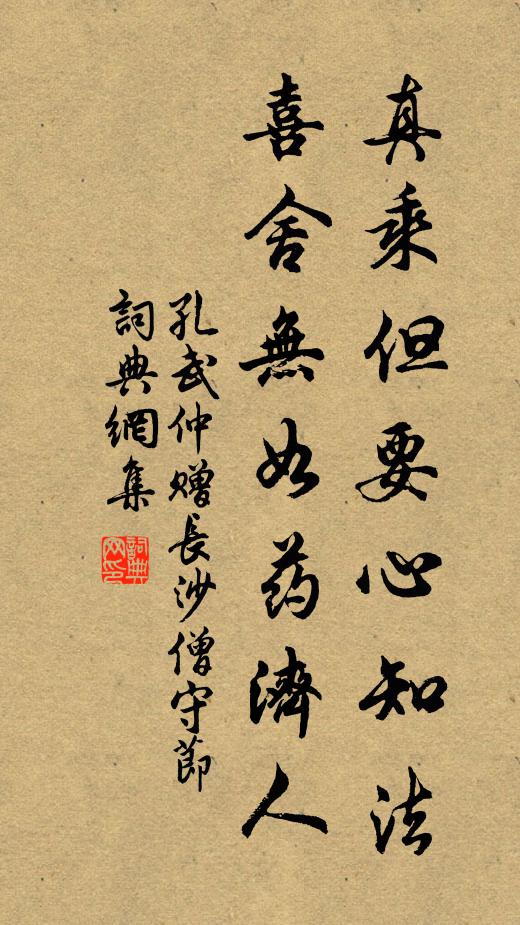 真乘但要心知法
喜舍無如药濟人
孔武仲赠長沙僧守節
詞典網集
詞典网印